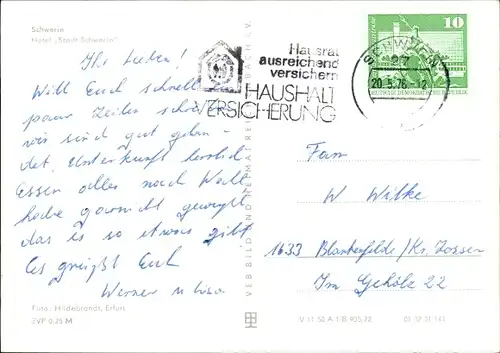 Schwerin
Hotel „Stadt Schwerin“
Ihr Lieben!
Will Euch schnell ein
paar Zeilen schreiben
wir sind gut gelan-
det. Unterkunft herrlich
Essen alles nach Wahl
habe garnicht gewußt
das es so etwas gibt
Es grüßt Euch
Werner u
Foto: Hildebrandt, Erfurt
EVP 0,25 M
VEB BILD UND HEIMAT REICHENBACH I. V.
Hausrat
ausreichend
versichern
HAUSHALT
VERSICHERUNG
SCHWERIN
27
20.5.76-12
10
DEUTSCHE DEMOKRATISCHE REPUBLIK
Fam
W Wilke
1633 Blankenfelde/Kr. Zossen
Im Gehölz 22
V 11 50 A 1/B 905/72